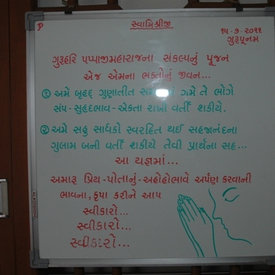 સ્વામિશ્રીજી
૧૫-૭-૨૦૧૧
ગુરૂપૂનમ
ગુરૂહરિ પપ્પાજીમહારાજના સંકલ્પનું પૂજન
એજ એમના ભક્તોનું જીવન...
① અમે બૃહદ્ ગુણાતીત સમાજમાં ગમે તે ભોગે
સંપ-સુહૃદભાવ-એકતા રાખી વર્તી શકીયે.
② અમે સહુ સાધકો સ્વરહિત થઈ સહજાનંદના
ગુલામ બની વર્તી શકીયે તેવી પ્રાર્થના સહ...
આ યજ્ઞમાં...
અમારૂ પ્રિય-પોતાનું-અહોહોભાવે અર્પણ કરવાની
ભાવના, કૃપા કરીને આપ
સ્વીકારો...
સ્વીકારો...
સ્વીકારો...